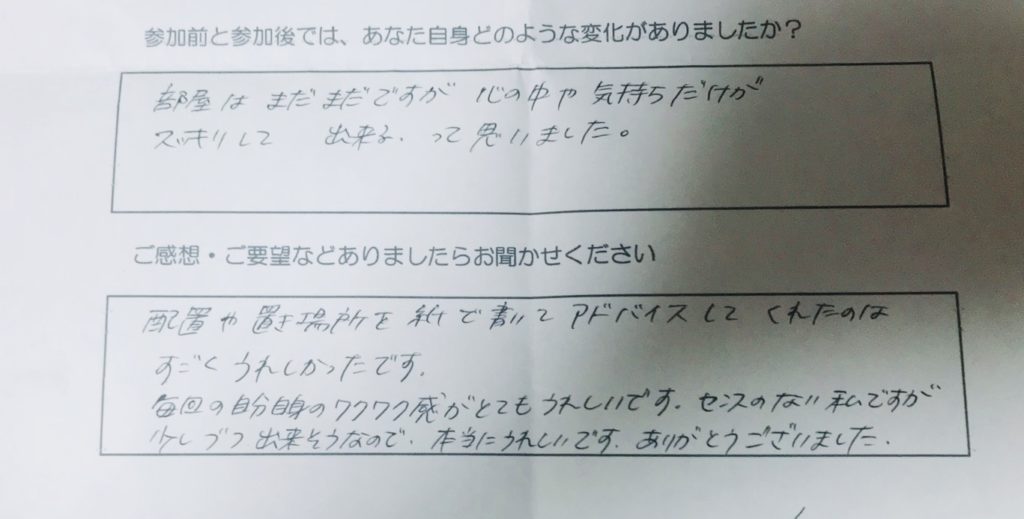 参加前と参加後では、あなた自身どのような変化がありましたか？
部屋は まだまだですが 心の中や 気持ちだけが
スッキリして 出来る. って思いました。
ご感想・ご要望などありましたらお聞かせください
配置や 置き場所を 紙で書いて アドバイスして くれたのは
すごく うれしかったです.
毎回の自分自身のワクワク感がとてもうれしいです. センスのない私ですが
少しづつ出来そうなので. 本当にうれしいです. ありがとうございました.